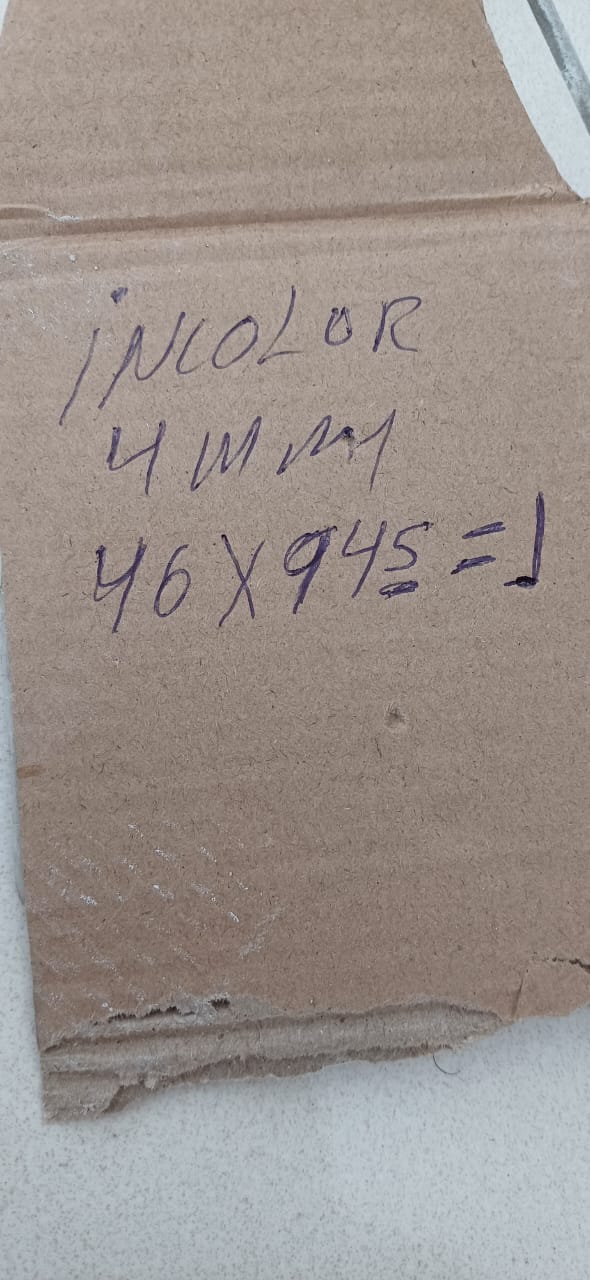 iNCOLOR
4 mm
46 X 945 = 1